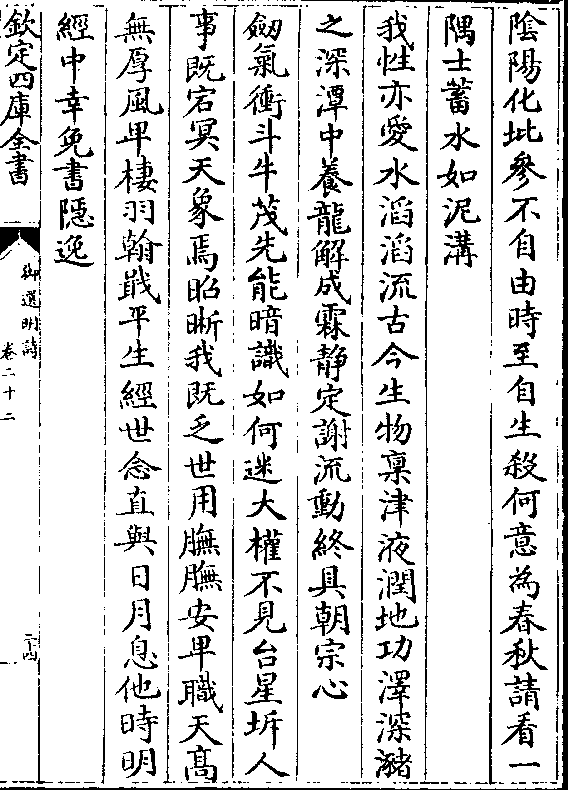 陰陽化坯參不自由時至自生殺何意為春秋請看一
隅士蓄水如泥溝
我性亦愛水滔滔流古今生物稟津液潤地功澤深潴
之深潭中養龍解成霖静定謝流動終具朝宗心
劒氣衝斗牛茂先能暗識如何迷大權不見台星坼人
事既宕冥天象焉昭晰我既乏世用膴膴安卑職天髙
無厚風卑棲羽翰戢平生經世念直與日月息他時明
經中幸免書隱逸
欽定四庫全書
御選明詩
卷二十二
二十四